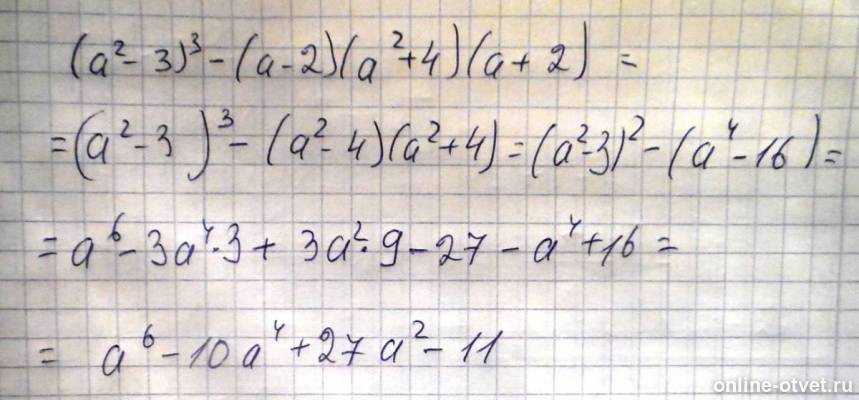 (a²-3)³-(a-2)(a²+4)(a+2)=
=(a²-3)³-(a²-4)(a²+4)=(a²-3)²-(a⁴-16)=
=a⁶-3a⁴·3+3a²·9-27-a⁴+16=
=a⁶-10a⁴+27a²-11
online-otvet.ru